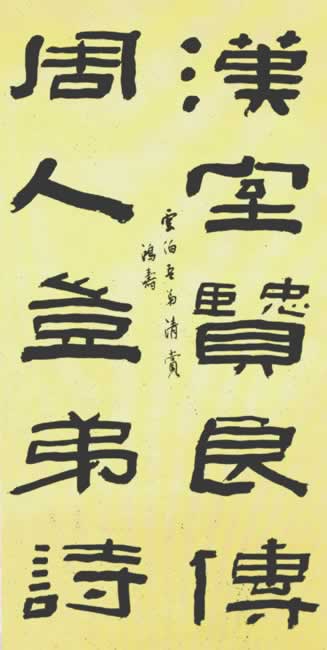 漢室賢良傳
雲伯吾弟清賞
鴻壽
周人豈弟詩